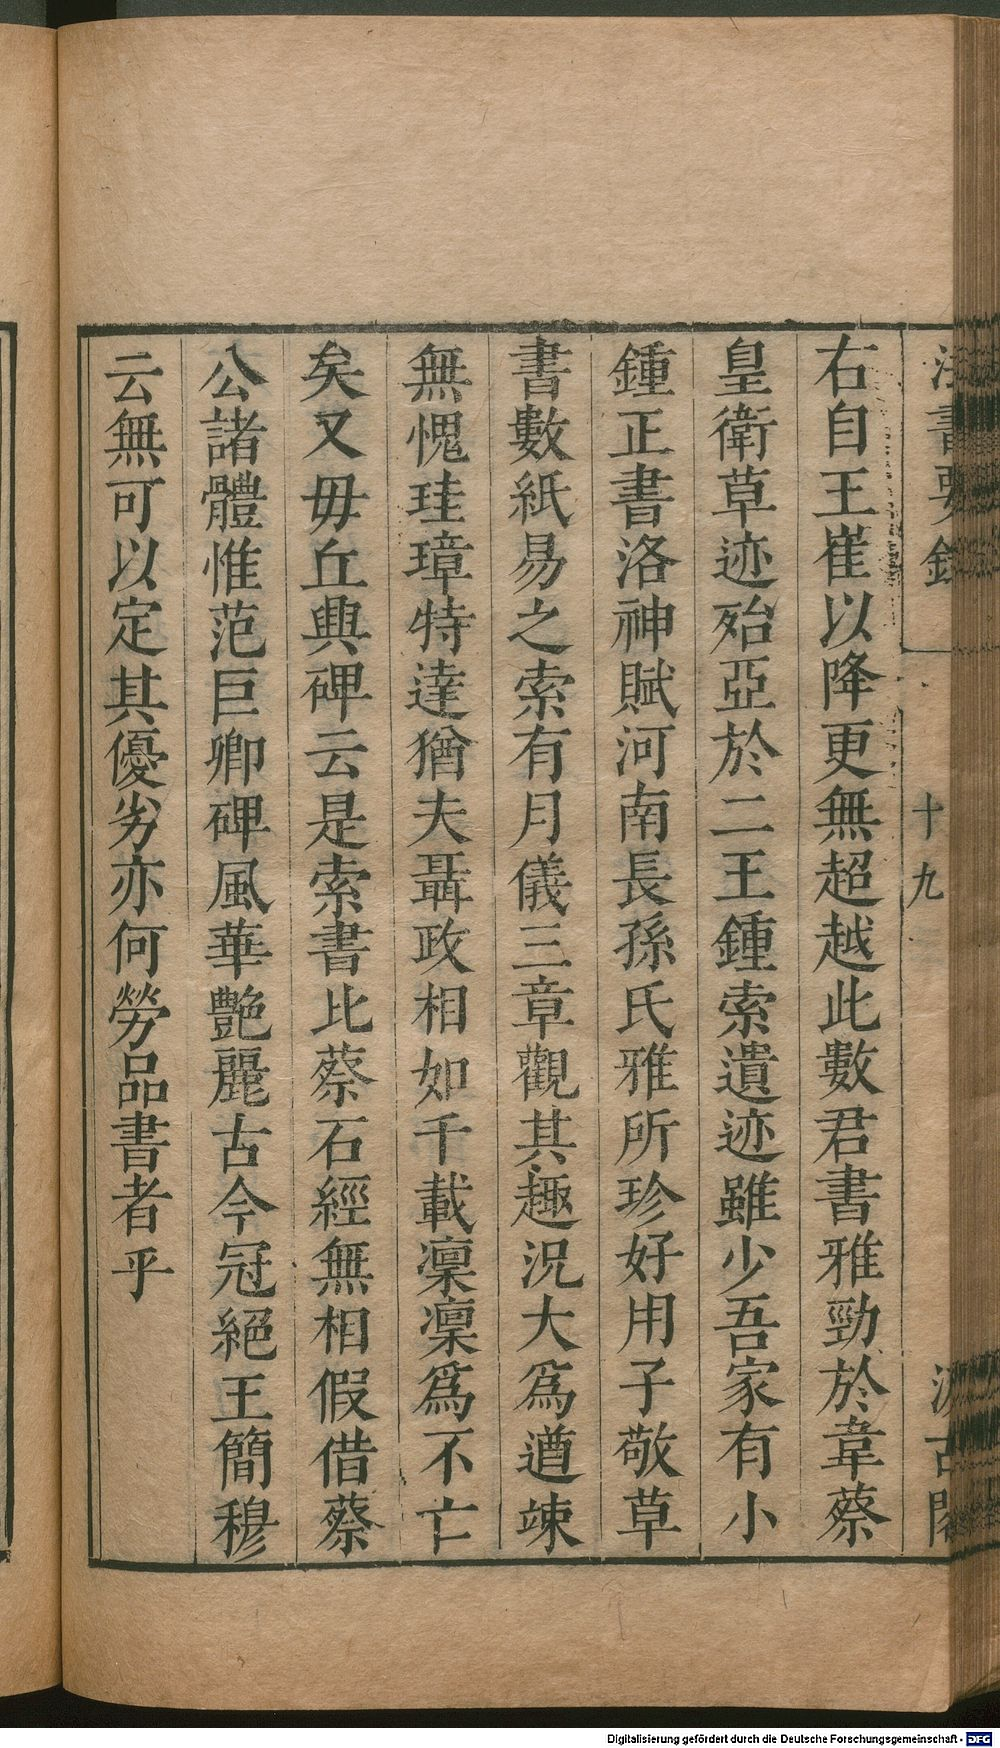 法書要錄
十九
汲古閣
右自王崔以降更無超越此數君書雅勁於韋蔡
皇衛草迹殆亞於二王鍾索遺迹雖少吾家有小
鍾正書洛神賦河南長孫氏雅所珍好用子敬草
書數紙易之索有月儀三章觀其趣況大為遒竦
無愧珪璋特達猶夫聶政相如千載凜凜為不亡
矣又毋丘興碑云是索書比蔡石經無相假借蔡
公諸體惟范巨卿碑風華艷麗古今冠絕王簡穆
云無可以定其優劣亦何勞品書者乎
Digitalisierung gefördert durch die Deutsche Forschungsgemeinschaft - DFG